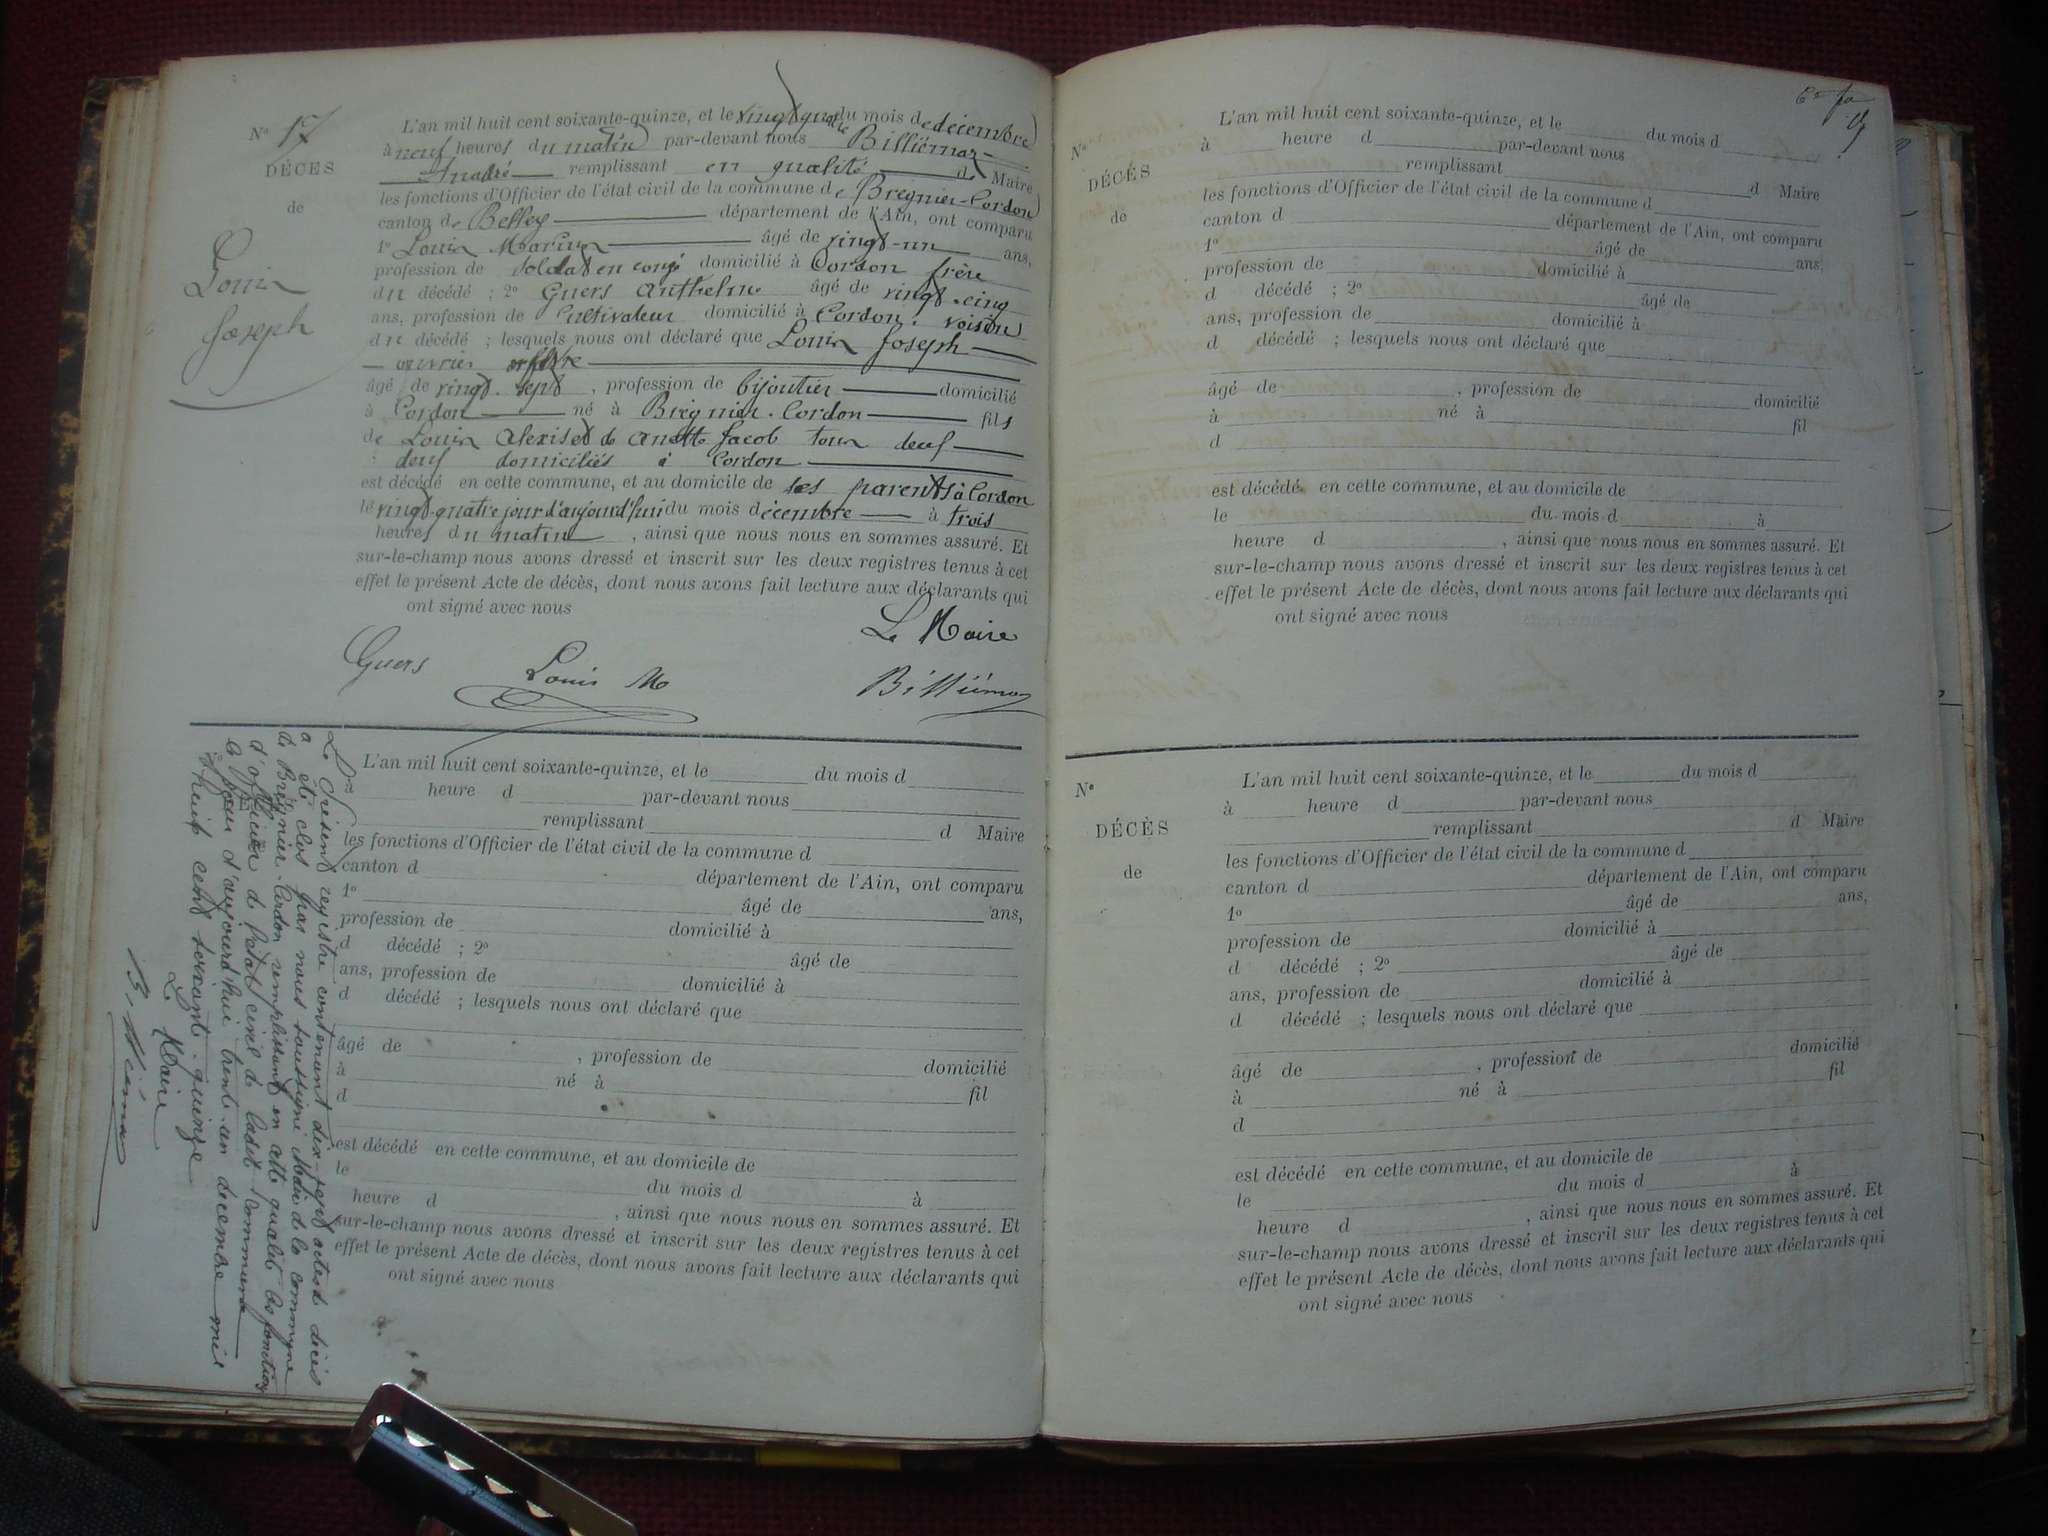 N° 17
DÉCÈS
de
Louis
Joseph
L'an mil huit cent soixante-quinze, et le vingt quatre du mois de décembre
à neuf heures du matin par-devant nous Billiémaz
André remplissant en qualité d Maire
les fonctions d'Officier de l'état civil de la commune de Bregnier-Cordon
canton de Belley département de l'Ain, ont comparu
1° Louis Marius âgé de vingt-un ans,
profession de soldat en congé domicilié à Cordon frère
du décédé ; 2° Guers Anthelme âgé de vingt-cinq
ans, profession de Cultivateur domicilié à Cordon. voisin
du décédé ; lesquels nous ont déclaré que Louis Joseph
ouvrier
âgé de vingt-sept, profession de bijoutier domicilié
à Cordon né à Brégnier-Cordon fils
de Louis Alexis et de Anette Jacob tous deux
deux domiciliés à Cordon
est décédé en cette commune, et au domicile de ses parents à Cordon
le vingt quatre jour d'aujourd'hui du mois décembre à trois
heures du matin, ainsi que nous nous en sommes assuré. Et
sur-le-champ nous avons dressé et inscrit sur les deux registres tenus à cet
effet le présent Acte de décès, dont nous avons fait lecture aux déclarants qui
ont signé avec nous
Le Maire
Guers Louis M Billiémaz
Le Présent registre contenant dix-sept actes décès
a été clos par nous soussigné Maire de la commune
de Brégnier-Cordon remplissant en cette qualité les fonctions
d'officier de l'état civil de ladite Commune
le jour d'aujourd'hui trente-un décembre mil
huit cent soixante-quinze
Le Maire
Billiémaz
L'an mil huit cent soixante-quinze, et le du mois d
heure d par-devant nous
remplissant d Maire
les fonctions d'Officier de l'état civil de la commune d
canton d département de l'Ain, ont comparu
1° âgé de ans,
profession de domicilié à
d décédé ; 2° âgé de
ans, profession de domicilié à
d décédé ; lesquels nous ont déclaré que
âgé de , profession de domicilié
à né à fil
d
est décédé en cette commune, et au domicile de
le du mois d à
heure d , ainsi que nous nous en sommes assuré. Et
sur-le-champ nous avons dressé et inscrit sur les deux registres tenus à cet
effet le présent Acte de décès, dont nous avons fait lecture aux déclarants qui
ont signé avec nous
N°
DÉCÈS
de
L'an mil huit cent soixante-quinze, et le du mois d
à heure d par-devant nous
remplissant d Maire
les fonctions d'Officier de l'état civil de la commune d
canton d département de l'Ain, ont comparu
1° âgé de ans,
profession de domicilié à
d décédé ; 2° âgé de
ans, profession de domicilié à
d décédé ; lesquels nous ont déclaré que
âgé de , profession de domicilié
à né à fil
d
est décédé en cette commune, et au domicile de
le du mois d à
heure d , ainsi que nous nous en sommes assuré. Et
sur-le-champ nous avons dressé et inscrit sur les deux registres tenus à cet
effet le présent Acte de décès, dont nous avons fait lecture aux déclarants qui
ont signé avec nous
N°
DÉCÈS
de
L'an mil huit cent soixante-quinze, et le du mois d
à heure d par-devant nous
remplissant d Maire
les fonctions d'Officier de l'état civil de la commune d
canton d département de l'Ain, ont comparu
1° âgé de ans,
profession de domicilié à
d décédé ; 2° âgé de
ans, profession de domicilié à
d décédé ; lesquels nous ont déclaré que
âgé de , profession de domicilié
à né à fil
d
est décédé en cette commune, et au domicile de
le du mois d à
heure d , ainsi que nous nous en sommes assuré. Et
sur-le-champ nous avons dressé et inscrit sur les deux registres tenus à cet
effet le présent Acte de décès, dont nous avons fait lecture aux déclarants qui
ont signé avec nous